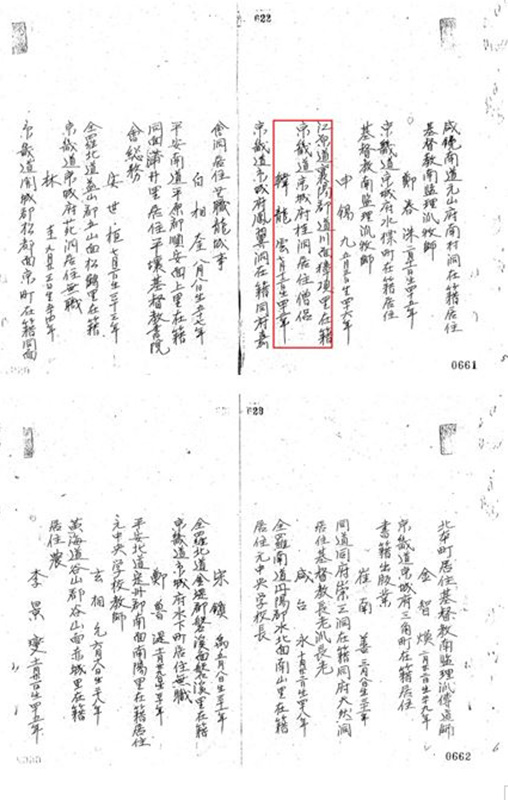 622
咸鏡南道元山府南村洞在籍居住
基督教南監理派牧師
鄭春洙
京畿道京城府水標町在籍居住
基督教南監理派牧師
申錫九 五月三日生四十六年
江原道襄陽郡道川面樟項里在籍
京畿道京城府桂洞居住僧侶
韓龍雲 七月十二日生四十一年
京畿道京城府鳳翼洞在籍同府嘉
會洞居住無職龍城事
白相奎 八月八日生五十七年
平安南道平原郡順安面上里在籍
同面濟井里居住平壤基督教書院
會総務
安世桓
全羅北道益山郡五山面松鶴里在籍
京畿道京城府北洞居住無職
林圭
京畿道開城郡松都面京町在籍同面
0661
623
北本町居住基督教南監理派傳道師
金智煥
京畿道京城府三角町在籍居住
書籍出版業
崔南善 三月八日生三十一年
同道同府崇三洞在籍同府天然洞
居住基督教長老派長老
咸台永
全羅南道潭陽郡水北面南山里在籍
居住元中央学校長
宋鎮禹 五月八日生三十一年
全羅北道金堤郡 里在籍
京畿道京城府 町居住無職
鄭魯湜
平安北道定州郡南面南陽里在籍居住
元中央学校教師
玄相允 六月八日生二十八年
黄海道谷山郡谷山面赤城里在籍
居住農
李景燮
0662